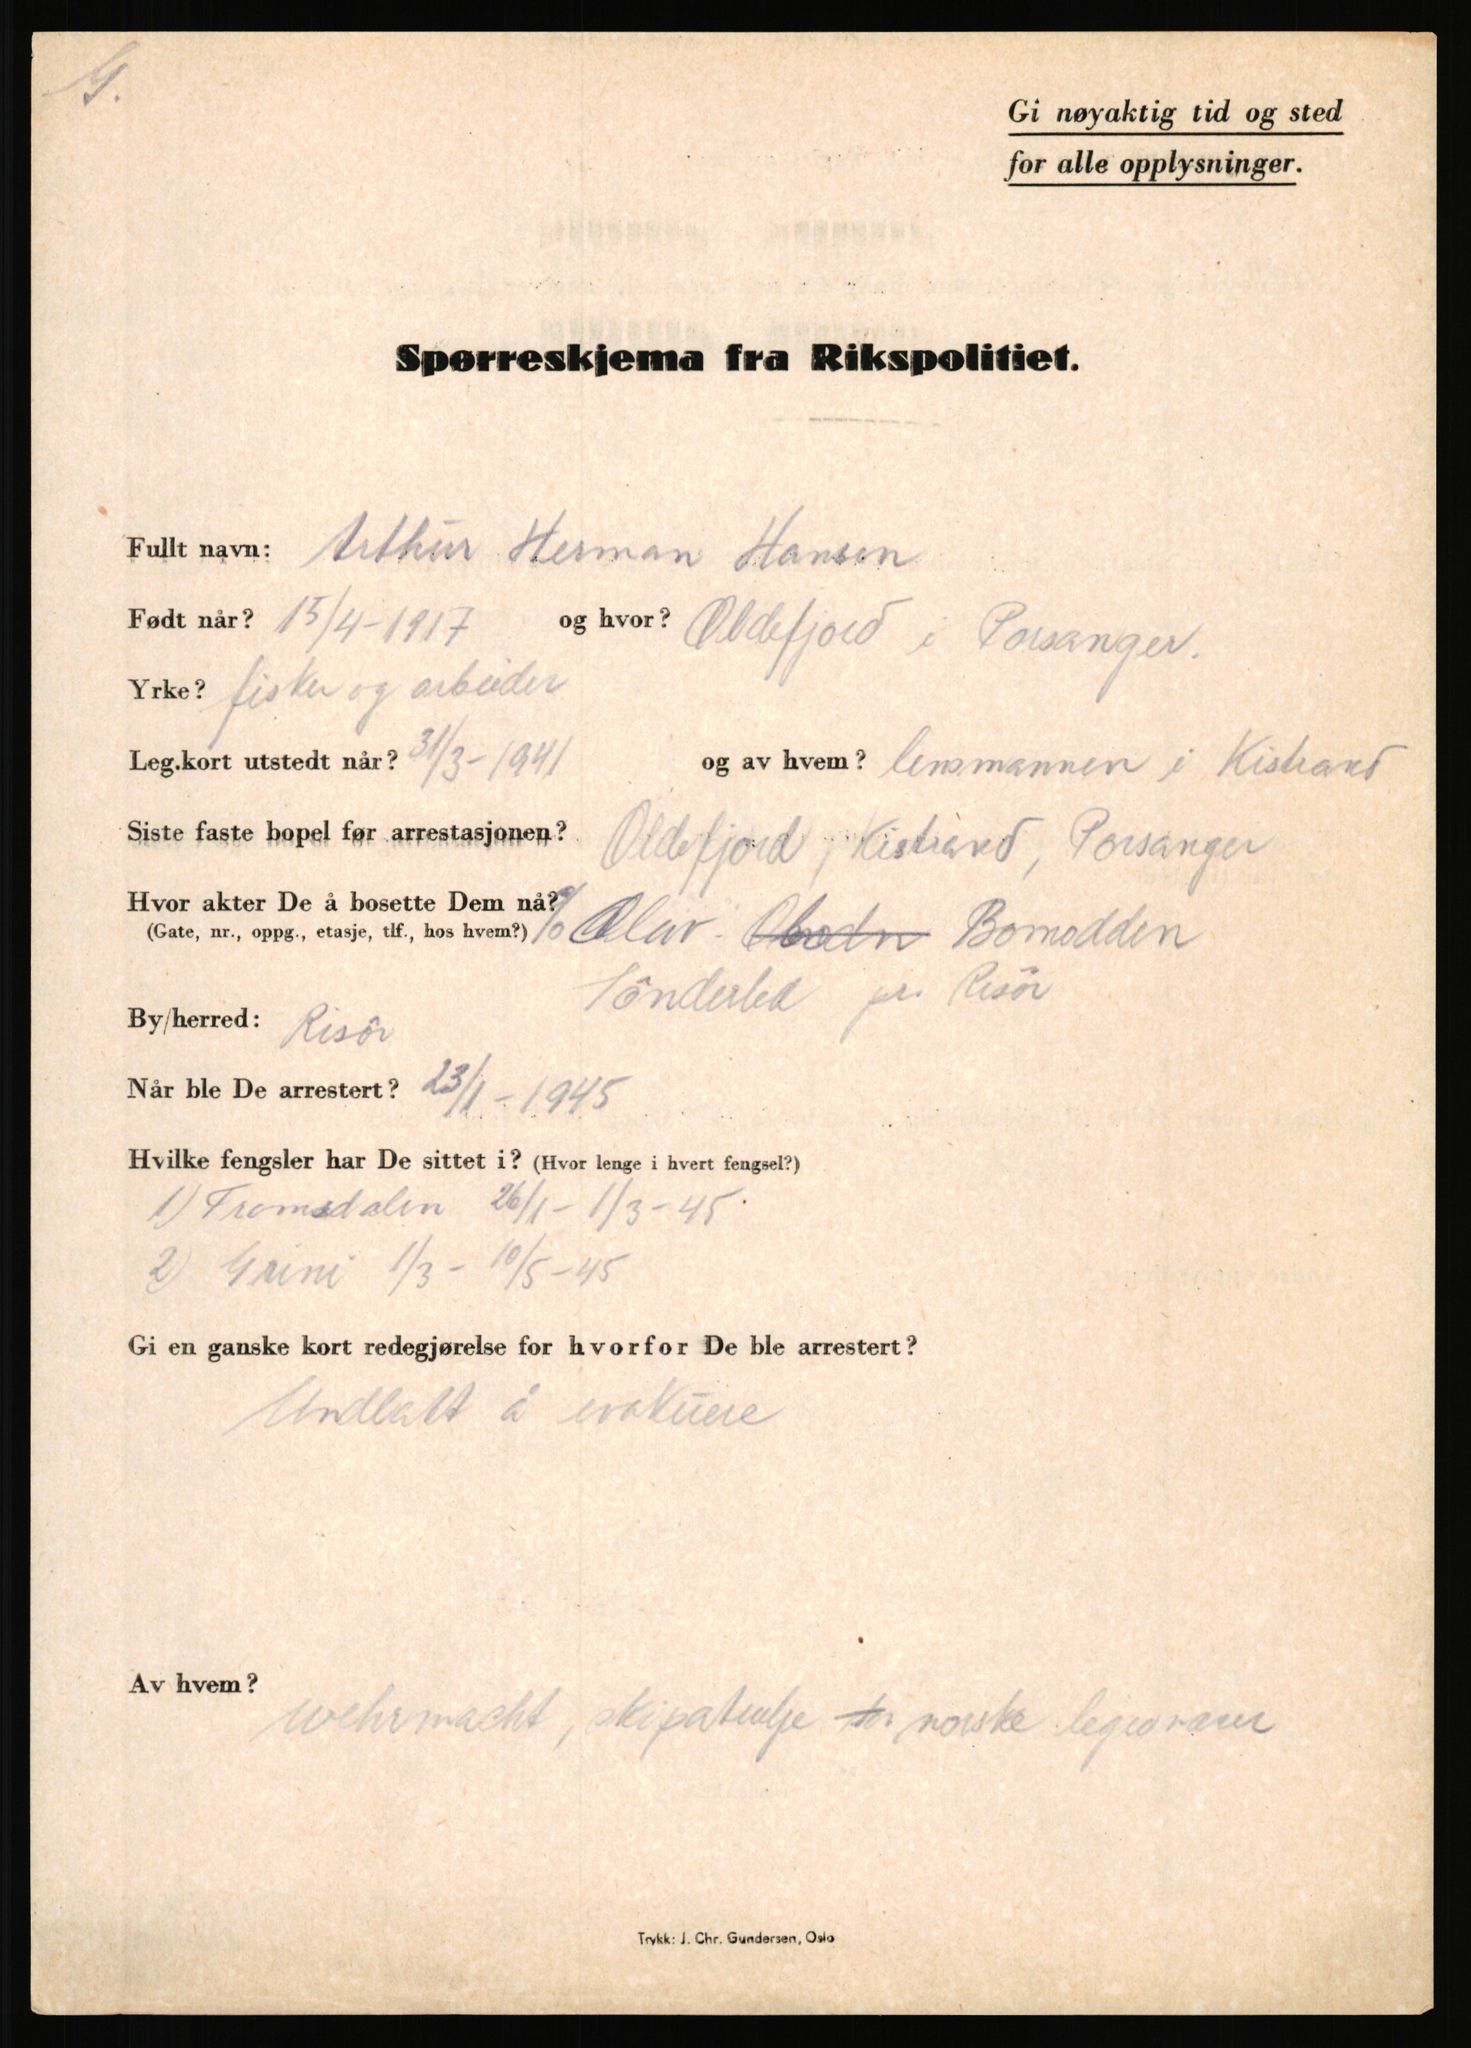 G.
Gi nøyaktig tid og sted
for alle opplysninger.
Spørreskjema fra Rikspolitiet.
Fullt navn: Arthur Herman Hansen
Født når? 15/4-1917 og hvor? Oldefjord i Porsanger.
Yrke? fisker og arbeider
Leg.kort utstedt når? 31/3-1941 og av hvem? lensmannen i Kistrand
Siste faste bopel før arrestasjonen? Oldefjord, Kistrand, Porsanger
Hvor akter De å bosette Dem nå? c/o Olav Bomodden
(Gate, nr., oppg., etasje, tlf., hos hvem?)
Sönderled pr. Risör
By/herred: Risör
Når ble De arrestert? 23/1-1945
Hvilke fengsler har De sittet i? (Hvor lenge i hvert fengsel?)
1) Tromsdalen 26/1 - 1/3-45
2) Grini 1/3 - 10/5-45
Gi en ganske kort redegjørelse for hvorfor De ble arrestert?
Undlatt å evakuere
Av hvem?
Wehrmacht, skipatrulje norske legionærer
Trykk: J. Chr. Gundersen, Oslo